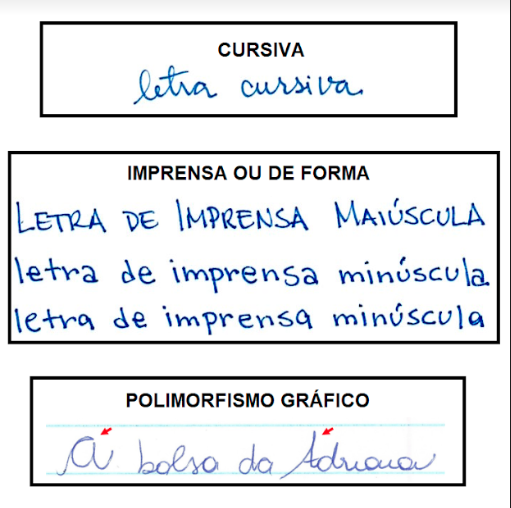 CURSIVA
letra cursiva
IMPRENSA OU DE FORMA
LETRA DE IMPRENSA MAIÚSCULA
letra de imprensa minúscula
letra de imprensa minúscula
POLIMORFISMO GRÁFICO
A bolsa da Adriana